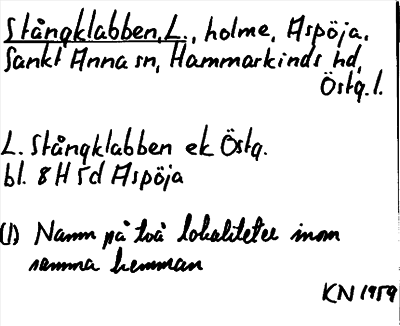 Stångklabben, L., holme, Aspöja,
Sankt Anna sn, Hammarkinds hd,
Östg. l.
L. Stångklabben ek Östg.
bl. 8 H 5d Aspöja
(1) Namn på två lokaliteter inom
samma hemman
KN 1959